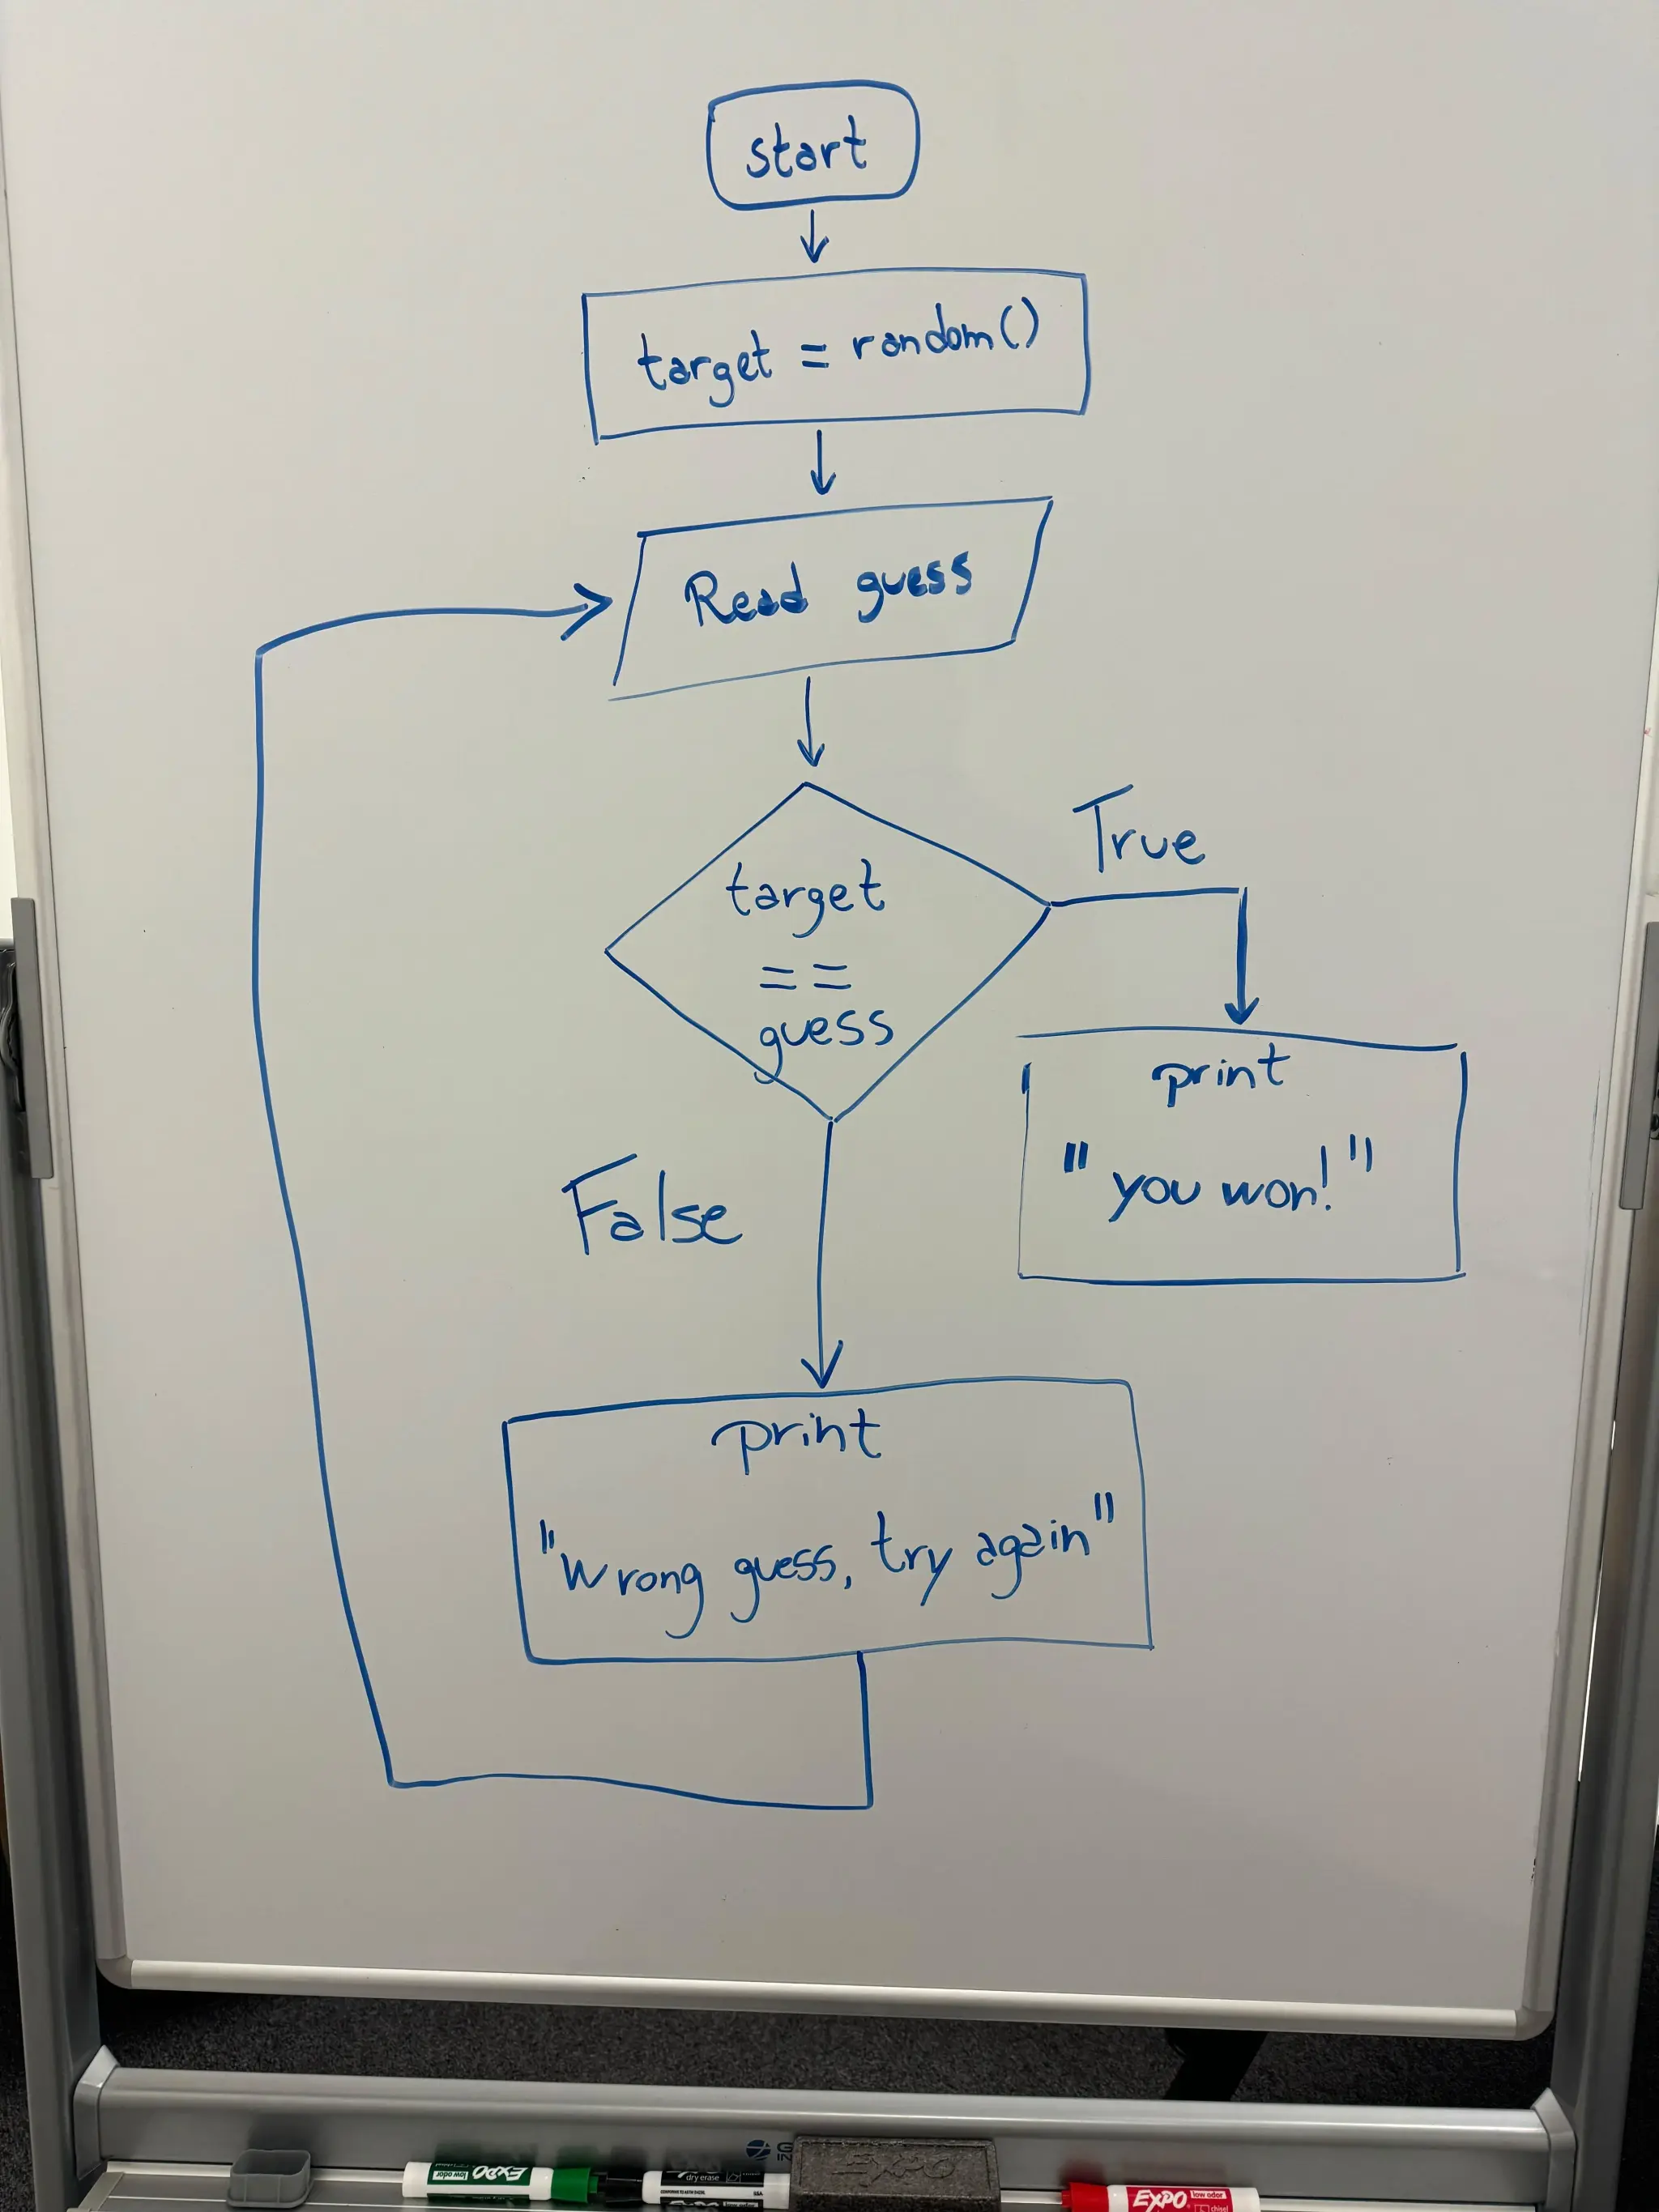 start
target = random()
Read guess
target
==
guess
True
False
print
"you won!"
print
"Wrong guess, try again"
EXPO
low odor
dry erase
EXPO
low odor
chisel